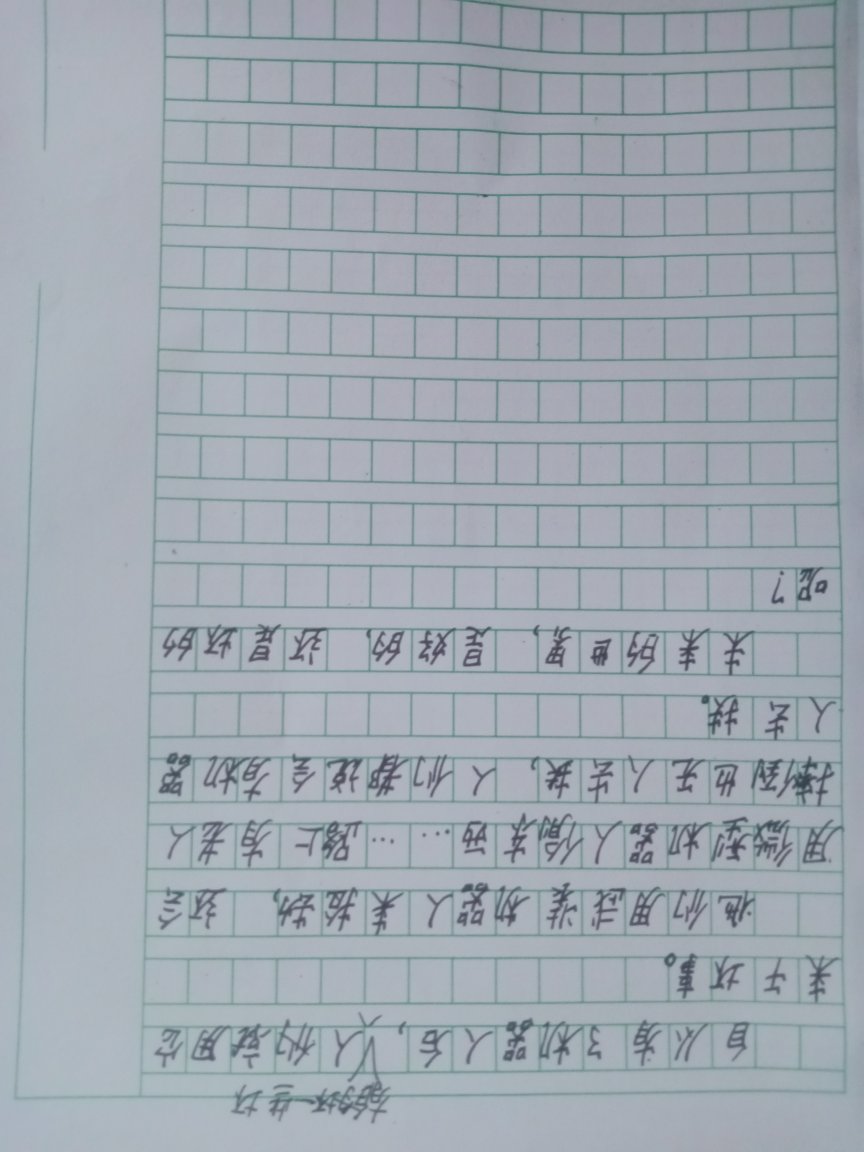 一些坏
自从有了机器人后，人们就用它
来干坏事。
他们用武装机器人来抢劫，还会
用微型机器人偷东西……路上有老人
摔倒也无人去扶，人们都说会有机器
人去扶。
未来的世界，是好的，还是坏的
呢？